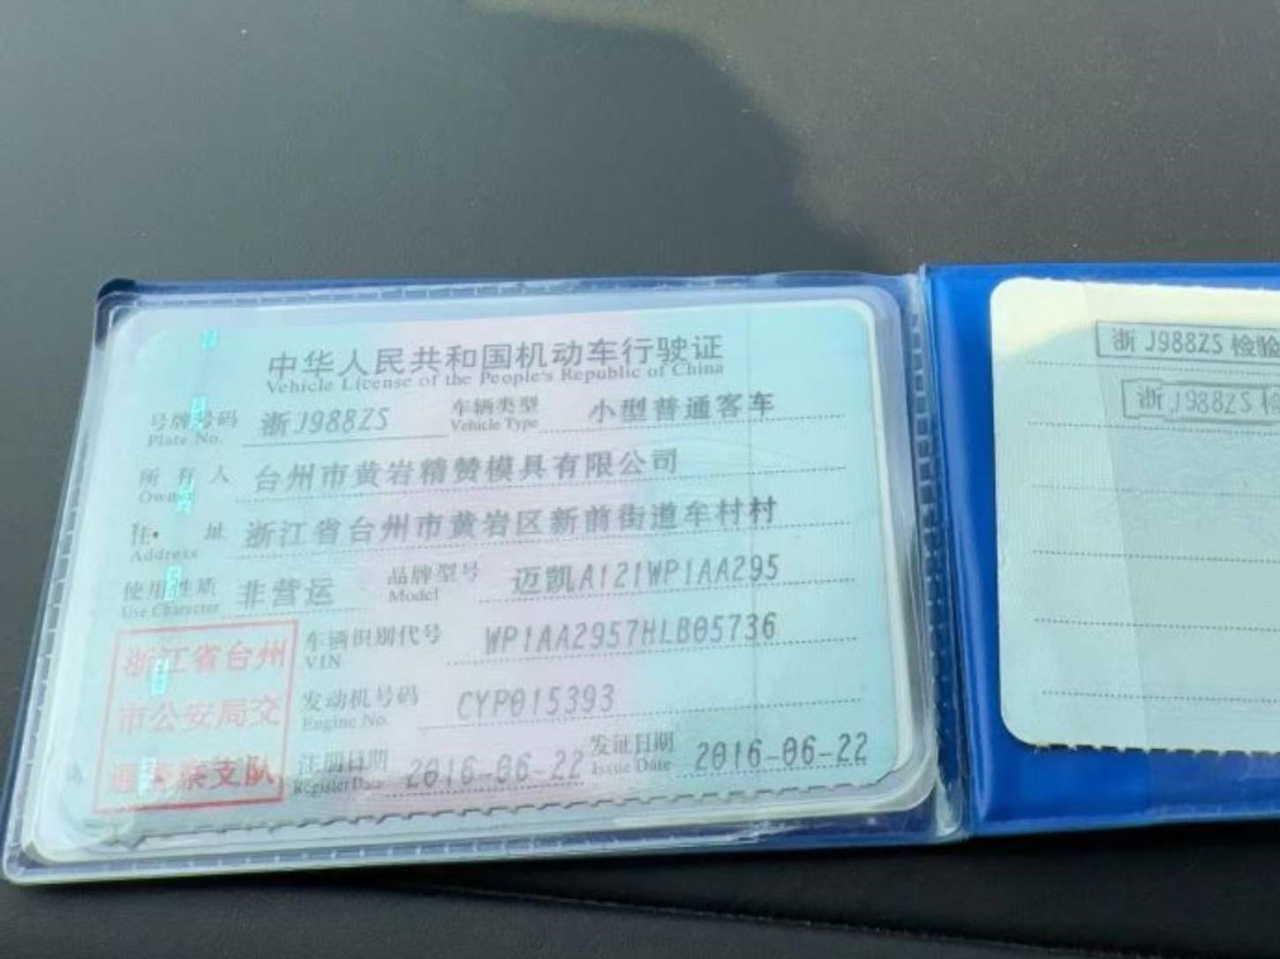 中华人民共和国机动车行驶证
Vehicle License of the People's Republic of China
号牌号码 浙J988ZS 车辆类型 小型普通客车
Plate No. Vehicle Type
所有人 台州市黄岩精赞模具有限公司
Owner
住址 浙江省台州市黄岩区新前街道车村村
Address
使用性质 非营运 品牌型号 迈凯A121WP1AA295
Use Character Model
车辆识别代号 WP1AA2957HLB05736
VIN
发动机号码 CYP015393
Engine No.
注册日期 2016-06-22 发证日期 2016-06-22
Register Date Issue Date
浙江省台州
市公安局交
通警察支队
浙J988ZS检验
浙J988ZS检